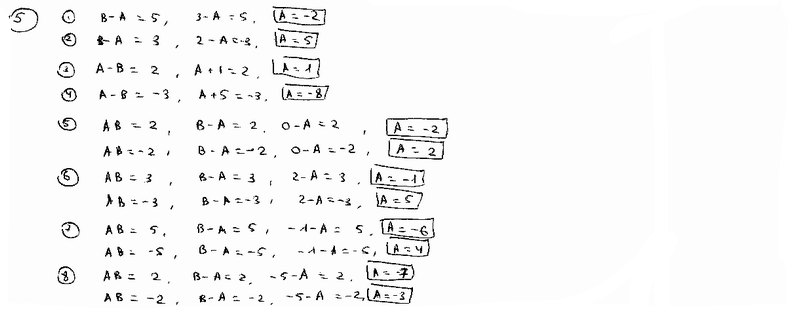 5 ① B-A = 5, 3-A = 5, A = -2
② B-A = 3, 2-A = -3, A = 5
③ A-B = 2, A+1 = 2, A = 1
④ A-B = -3, A+5 = -3, A = -8
⑤ AB = 2, B-A = 2, 0-A = 2, A = -2
AB = -2, B-A = -2, 0-A = -2, A = 2
⑥ AB = 3, B-A = 3, 2-A = 3, A = -1
AB = -3, B-A = -3, 2-A = -3, A = 5
⑦ AB = 5, B-A = 5, -1-A = 5, A = -6
AB = -5, B-A = -5, -1-A = -5, A = 4
⑧ AB = 2, B-A = 2, -5-A = 2, A = -7
AB = -2, B-A = -2, -5-A = -2, A = -3